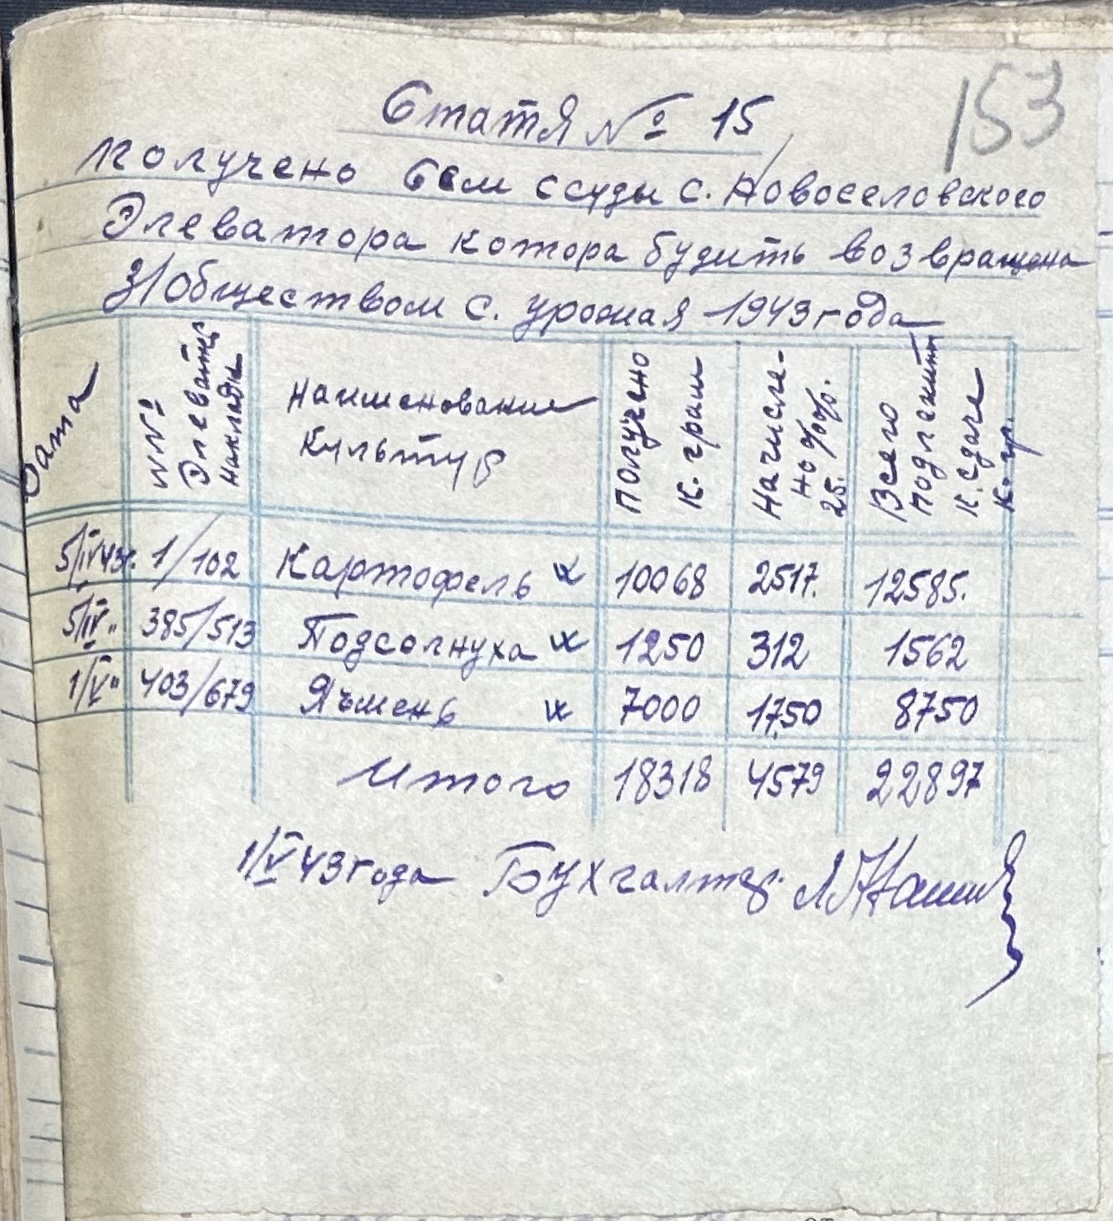 153
Стаття № 15
Получено Сем ссуды с. Новоселовского
Элеватора котора будить возвращена
З/Обществом с. урожая 1943 года
Дата | №№ Элеватц Накладн | Наименование Культур | Получено К. грам | Начисле-но %%. 25. | Всего подлежит к. сдаче к. гр.
5/IV 43г. | 1/102 | Картофель | 10068 | 2517. | 12585.
5/IV " | 385/513 | Подсолнуха | 1250 | 312 | 1562
1/V " | 403/679 | Яъмень | 7000 | 1750 | 8750
Итого | 18318 | 4579 | 22897
1/V 43 года Бухгалтер.